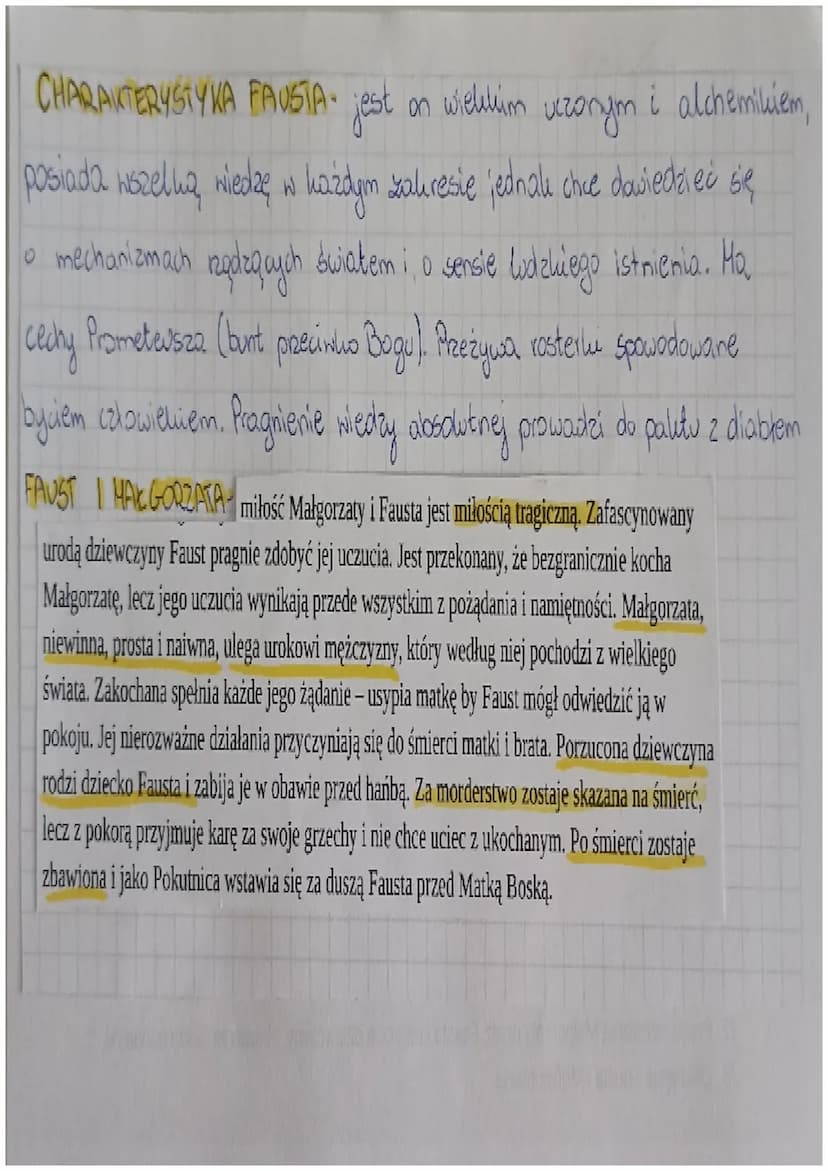 CHARAKTERYSTYKA FAUSTA- jest on wielkim uczonym i alchemikiem,
posiada wszelką wiedzę w każdym zakresie jednak chce dowiedzieć się
o mechanizmach rządzących światem i o sensie ludzkiego istnienia. Ma
cechy Prometeusza (bunt przeciwko Bogu). Przeżywa rosterki spowodowane
byciem człowiekiem. Pragnienie wiedzy absolutnej prowadzi do paktu z diabłem
FAUST I MAŁGORZATA- miłość Małgorzaty i Fausta jest miłością tragiczną. Zafascynowany
urodą dziewczyny Faust pragnie zdobyć jej uczucia. Jest przekonany, że bezgranicznie kocha
Małgorzatę, lecz jego uczucia wynikają przede wszystkim z pożądania i namiętności. Małgorzata,
niewinna, prosta i naiwna, ulega urokowi mężczyzny, który według niej pochodzi z wielkiego
świata. Zakochana spełnia każde jego żądanie – usypia matkę by Faust mógł odwiedzić ją w
pokoju. Jej nierozważne działania przyczyniają się do śmierci matki i brata. Porzucona dziewczyna
rodzi dziecko Fausta i zabija je w obawie przed hańbą. Za morderstwo zostaje skazana na śmierć,
lecz z pokorą przyjmuje karę za swoje grzechy i nie chce uciec z ukochanym. Po śmierci zostaje
zbawiona i jako Pokutnica wstawia się za duszą Fausta przed Matką Boską.